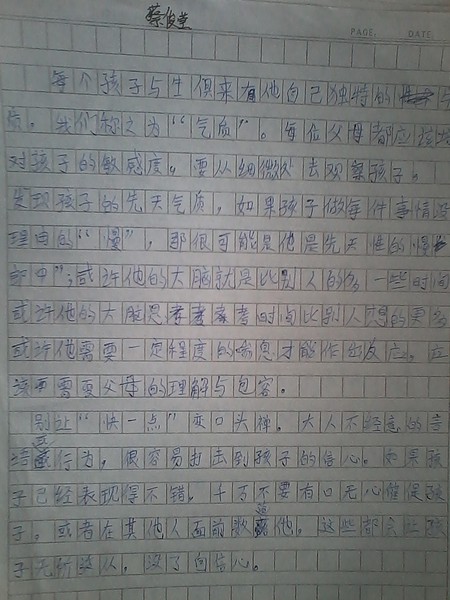 蔡俊堂
PAGE: DATE:
每个孩子与生俱来有他自己独特的 与
质。我们称之为“气质”。每位父母都应该
对孩子的敏感度。要从细微处去观察孩子。
发现孩子的先天气质。如果孩子做每件事情没
理由的“慢”，那很可能是他是先天性的慢
郎中”；或许他的大脑就是比别人的多一些时间
或许他的大脑思考时间比别人想的更多
或许他需要一定程度的 才能作出反应。应
该要需要父母的理解与包容。
别让“快一点”变口头禅。大人不经意的言
语行为，很容易打击到孩子的信心。如果孩
子已经表现得不错。千万不要有口无心催促孩
子。或者在其他人面前 他。这些都会让孩
子无所适从。没了自信心。